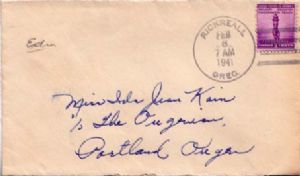 Edra
RICKREALL
FEB
6
7 AM
1941
OREG.
Miss Ida Jean Kain
% The Oregonian
Portland Oregon